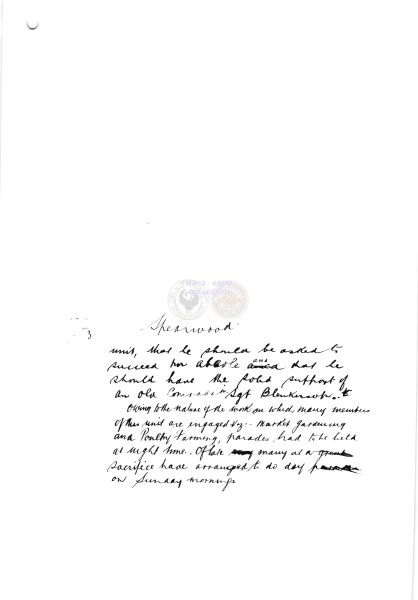 3
Spearwood
unit, that he should be asked to
succeed Mr Abcole and that he
should have the solid support of
an old Comrade in Sgt Blenkinsop.
Owing to the nature of the work on which many members
of this unit are engaged viz:- Market Gardening
and Poultry Farming, parades had to be held
at night time. Of late many at a
sacrifice have arranged to do day
on Sunday mornings